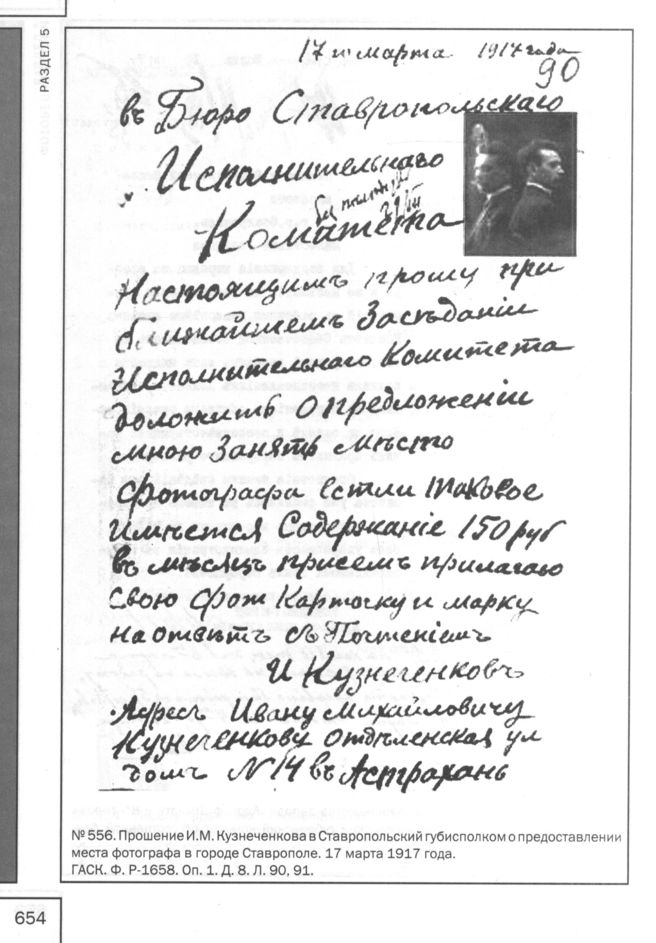 РАЗДЕЛ 5
17го марта 1917 года
90
въ Бюро Ставропольскаго
Исполнительнаго
Комитета
Настоящимъ прошу при
ближайшемъ Засѣданіи
Исполнительнаго Комитета
доложить о предложеніи
мною Занять мѣсто
фотографа естли таковое
имѣется Содержаніе 150 руб
въ мѣсяцъ присемъ прилагаю
свою фот Карточку и марку
на отвѣтъ съ Почтеніемъ
И Кузнеченковъ
Адресъ Ивану Михайловичу
Кузнеченкову Отдѣленская ул
домъ N 14 въ Астрахань
№ 556. Прошение И.М. Кузнеченкова в Ставропольский губисполком о предоставлении
места фотографа в городе Ставрополе. 17 марта 1917 года.
ГАСК. Ф. Р-1658. Оп. 1. Д. 8. Л. 90, 91.
654